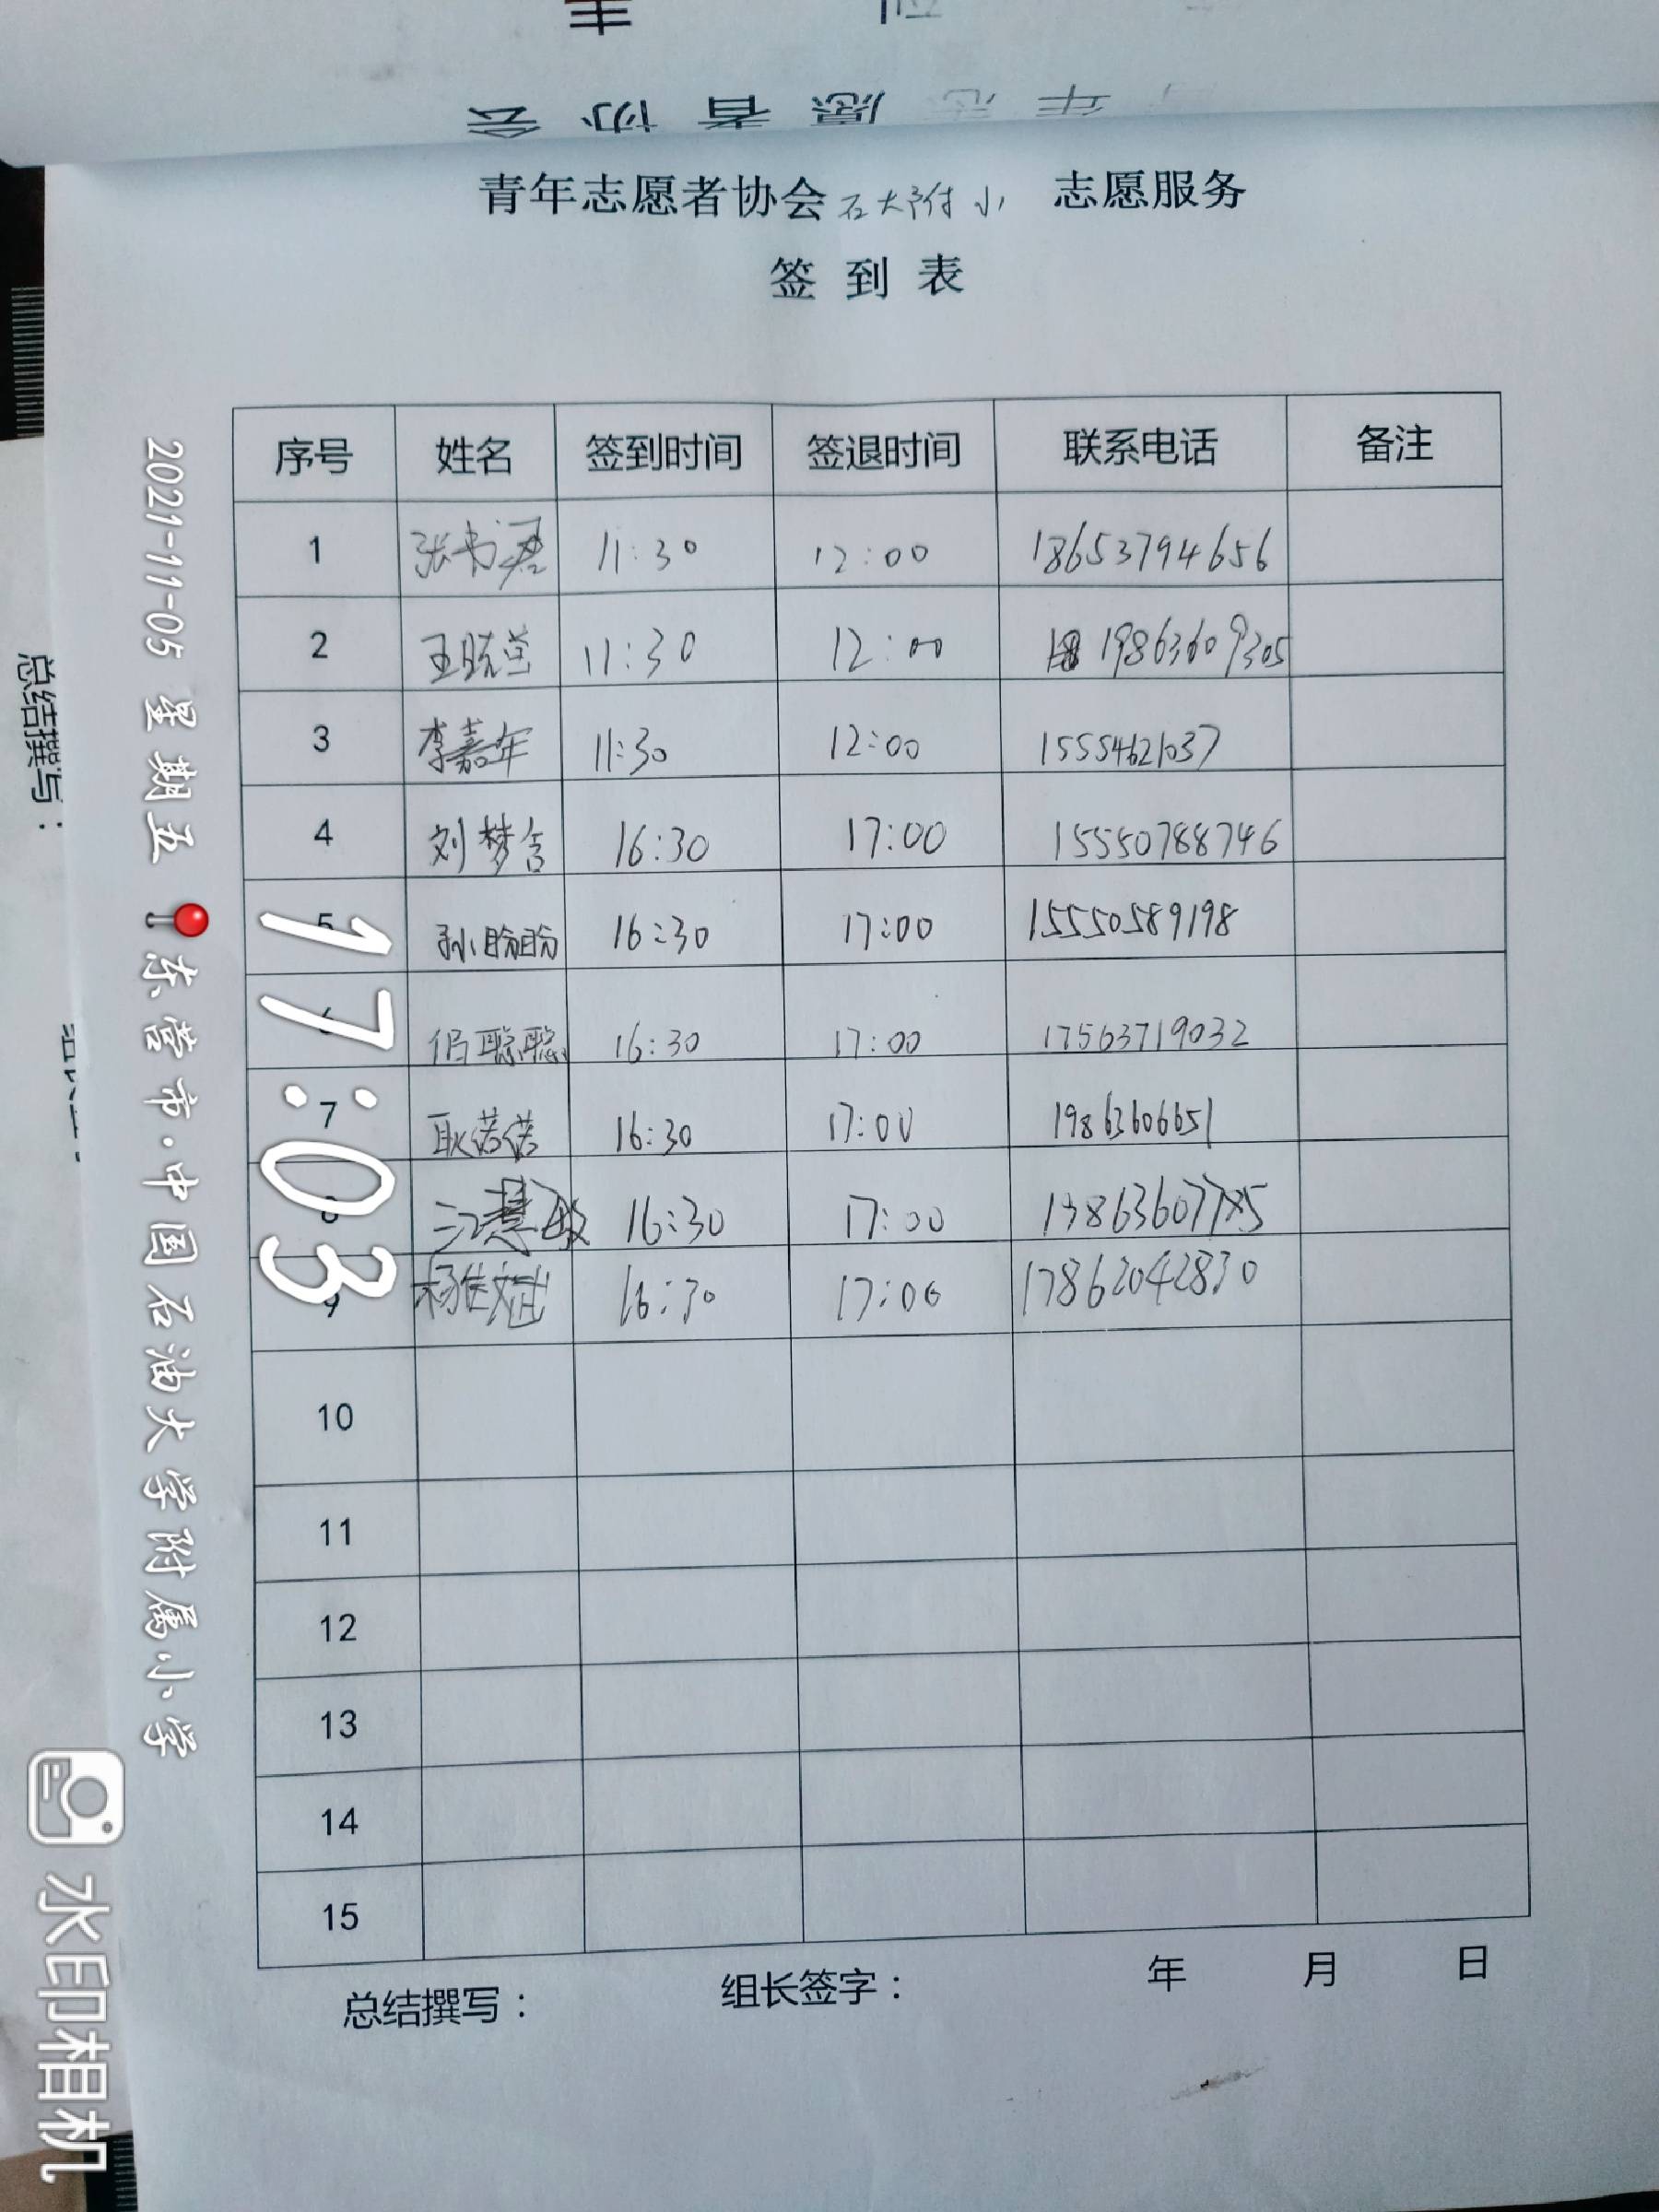 青年志愿者协会
青年志愿者协会石大附小 志愿服务
签到表
序号 姓名 签到时间 签退时间 联系电话 备注
1 张书 11:30 12:00 18653794656
2 王晓 11:30 12:00 19863609305
3 李嘉年 11:30 12:00 15554621037
4 刘梦 16:30 17:00 15550788746
5 孙盼盼 16:30 17:00 15550589198
6 聪聪 16:30 17:00 17563719032
7 耿诺诺 16:30 17:00 19863606651
8 江慧敏 16:30 17:00
9 杨佳斌 16:30 17:00 17862042830
10
11
12
13
14
15
总结撰写： 组长签字： 年 月 日
总结撰写：
17:03
2021-11-05 星期五 东营市·中国石油大学附属小学
水印相机